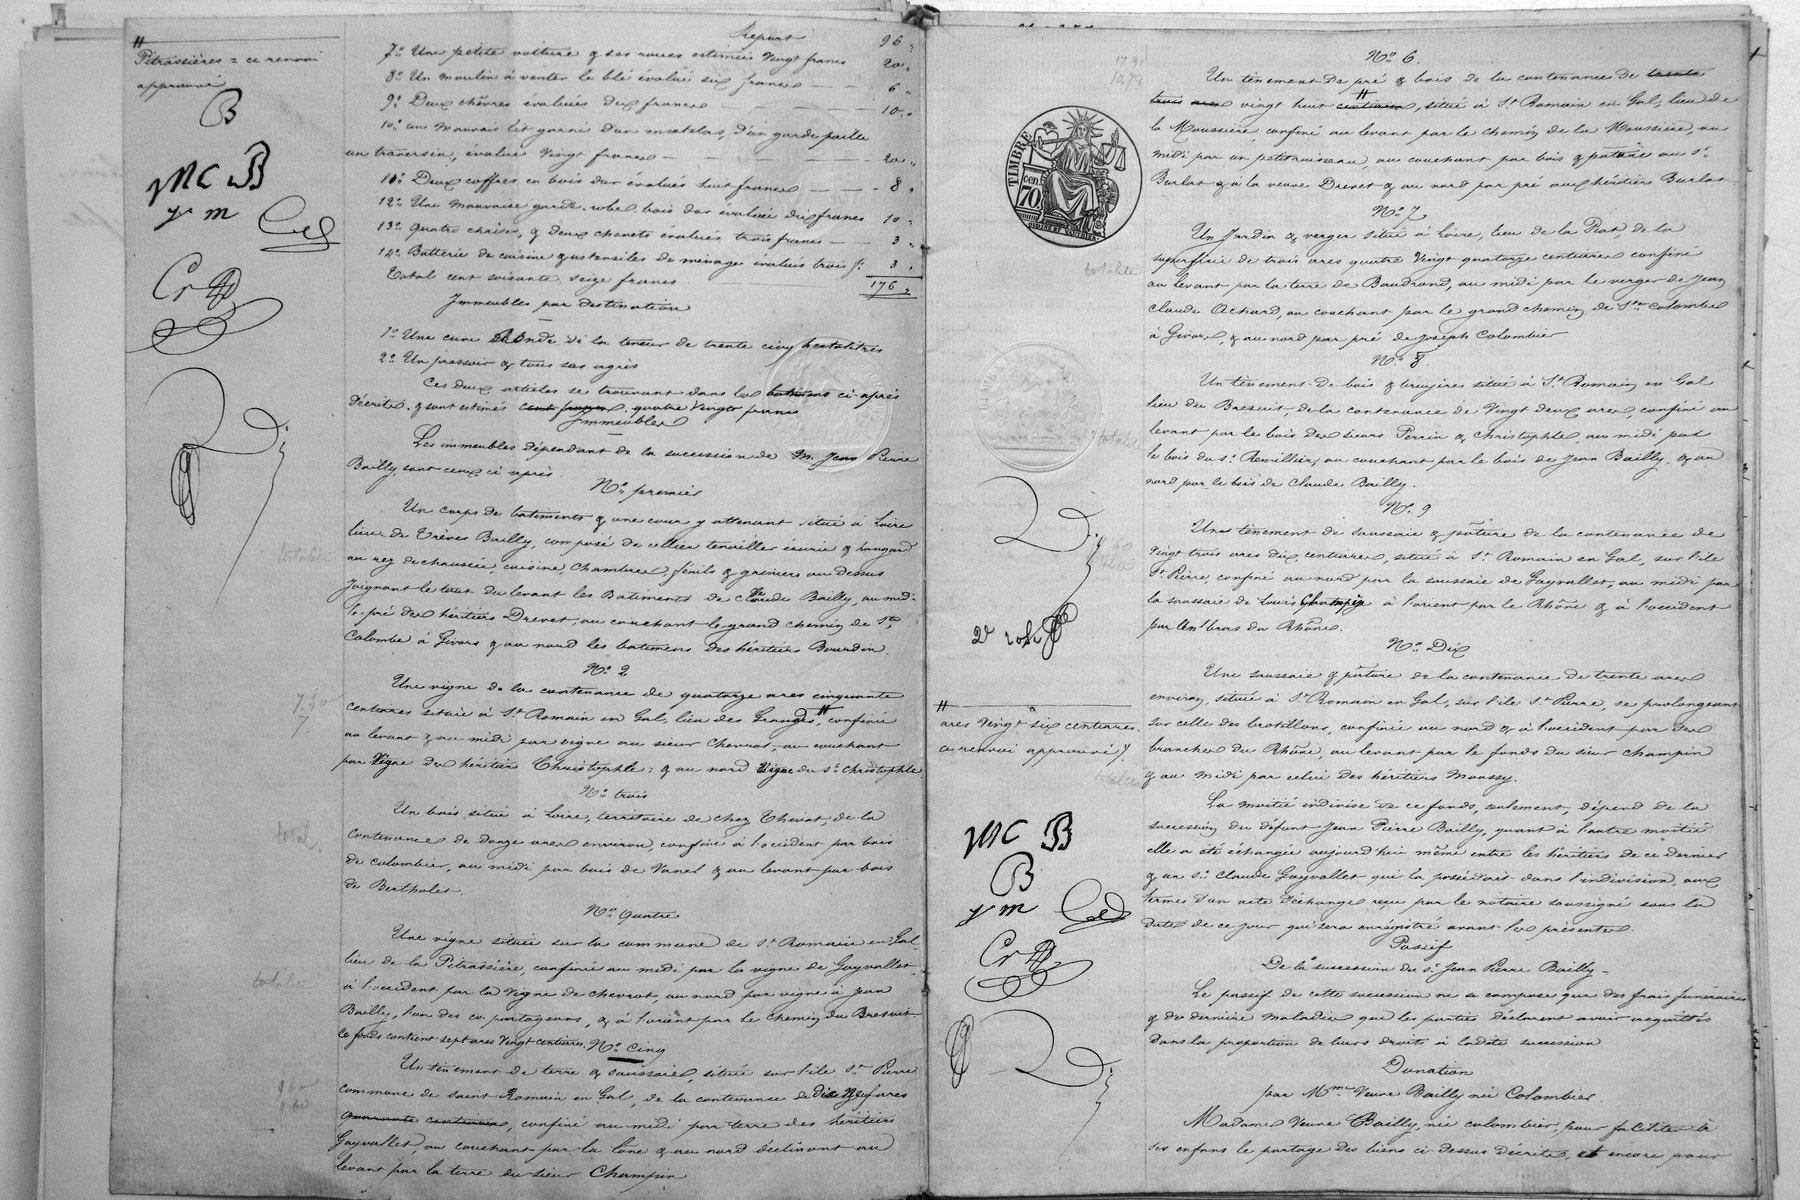 Report 96 "
7.° Une petite voiture & ses roues estimées Vingt francs 20 "
8.° Un moulin à venter le blé évalué six francs — — 6 "
9.° Deux chèvres évaluées dix francs — — — 10 "
10.° un mauvais lit garni d'un matelas, d'un garde paille
un traversin, évalué Vingt francs — — — — 20 "
11.° Deux coffres en bois dur évalués huit francs — — - 8 "
12.° Une mauvaise garde-robe bois dur évaluée dix francs 10 "
13.° quatre chaises, & deux chenets évalués trois francs — — 3 "
14.° Batterie de cuisine & ustensiles de ménage évalués trois f. 3 "
Total cent soixante seize francs 176 "
Immeubles par destination
1.° Une cuve Ronde de la teneur de trente cinq hectolitres
2.° Un pressoir & tous ses agrès
Ces deux articles se trouvant dans les batimens ci-après
décrits & sont estimés cent francs quatre Vingts francs
Immeubles
Les immeubles dépendant de la succession de M. Jean Pierre
Bailly, sont ceux ci après.
N.° premier
Un corps de batiments & une cour y attenant situé à Loire
lieu de Trèves Bailly, composé de cellier tenaillier écurie & hangard
au rez de chaussée, cuisine, Chambres, fénils & greniers au Dessus
Joignant le tout du levant les Batiments de Claude Bailly, au midi
le pré des héritiers Drevet, au couchant le grand chemin de S.te
Colombe à Givors & au nord les batimens des héritiers Bourdin.
N.° 2
Une vigne de la contenance de quatorze ares cinquante
centiares située à S.t Romain en Gal, lieu des Grandes, confinée
au levant & au midi par vigne au sieur Chevrot, au couchant
par Vigne des héritiers Christophle; & au nord Vigne du S.r Christophle.
N.° trois
Un bois situé à Loire, territoire de chez Thivat, de la
Contenance de douze ares environ, confiné à l'occident par bois
de colombier, au midi par bois de Vanel & au levant par bois
de Bertholet.
N.° Quatre
Une vigne située sur la commune de S.t Romain en Gal,
lieu de la Pétrassière, confinée au midi par la vigne de Gayvallet,
à l'occident par la Vigne de chevrot, au nord par vigne à Jean
Bailly, l'un des co partageans, & à l'orient par le chemin du Bresuit
Ce fonds contient sept ares Vingt centiares. N.° Cinq
Un tènement de terre & saussaie, située sur l'ile S.t Pierre
commune de saint Romain en Gal, de la contenance de dix Neuf ares
quarante centiares, confiné au midi par terre des héritiers
Gayvallet, au couchant par la lône & au nord déclinant au
levant par la terre du sieur Champin
Pétrassières = ce renvoi
approuvé
B
MC B
y m
Cr
totalité
7.
total.
totalité
N.° 6.
Un tènement de pré & bois de la contenance de trente
trois ares vingt huit centiares, situé à S.t Romain en Gal, lieu de
la Moussière, confiné au levant par le chemin de la Moussière, au
midi par un petit ruisseau, au couchant par bois & pature au S.r
Burlat & à la veuve Drevet & au nord par pré aux héritiers Burlat
N.° 7
Un Jardin & verger situé à Loire, lieu de la Plat, de la
superficie de trois ares quatre Vingt quatorze centiares confiné
au levant par la terre de Baudrand, au midi par le verger de Jean
Claude Achard, au couchant par le grand chemin de S.te Colombe
à Givors, & au nord par pré de Joseph Colombier
N.° 8
Un tènement de bois & bruyères situé à S.t Romain en Gal
lieu du Bresuit, de la contenance de Vingt deux ares, confiné au
levant par le bois des sieurs Perrin & Christophle, au midi par
le bois du S.r Remillier, au couchant par le bois de Jean Bailly, & au
nord par le bois de Claude Bailly.
N.° 9
Un tènement de saussaie & pâture de la contenance de
Vingt trois ares dix centiares, situé à S.t Romain en Gal, sur l'ile
S.t Pierre, confiné au nord par la saussaie de Gayvallet, au midi par
la saussaie de Louis Champin à l'orient par le Rhône & à l'occident
par Un bras du Rhône.
N.° Dix
Une saussaie & pâture de la contenance de trente ares
environ, située à S.t Romain en Gal, sur l'ile S.t Pierre, se prolongeant
sur celle des brotillons, confinée au nord & à l'occident par des
branches du Rhône, au levant par le fonds du sieur champin
& au midi par celui des héritiers Moussy.
La moitié indivise de ce fonds, seulement, dépend de la
succession du défunt Jean Pierre Bailly, quant à l'autre moitié
elle a été échangée aujourd'hui même entre les héritiers de ce dernier
& un S.r Claude Gayvallet qui la possédait dans l'indivision, aux
termes d'un acte d'échange reçu par le notaire soussigné sous la
date de ce jour qui sera enrégistré avant les présentes.
Passif
De la succession du S.r Jean Pierre Bailly =
Le passif de cette succession ne se compose que des frais funéraires
& de dernière maladie que les parties déclarent avoir acquittés
dans la proportion de leurs droits à ladite succession
Donation
par M.me Veuve Bailly née Colombier.
Madame Veuve Bailly, née colombier, pour faciliter à
ses enfans le partage des biens ci-dessus décrits, et encore pour
TIMBRE
cen
70
totalité
totalité
2e rôle
ares Vingt six centiares.
ce renvoi approuvé
totalité
MC B
B
y m
Cr